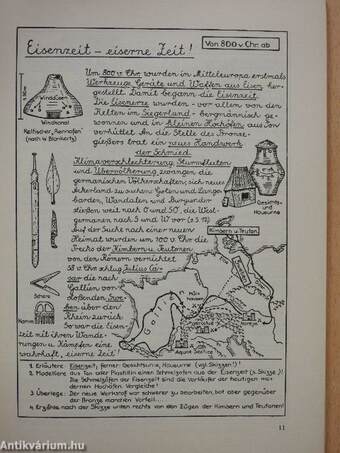 Eisenzeit – eiserne Zeit!
Von 800 v. Chr. ab
Um 800 v. Chr. wurden in Mitteleuropa erstmals
Werkzeuge, Geräte und Waffen aus Eisen her-
gestellt. Damit begann die Eisenzeit.
Die Eisenerze wurden – vor allem von den
Kelten im Siegerland – bergmännisch ge-
wonnen und in kleinen Hochöfen aus Ton
verhüttet. An die Stelle des Bronze-
gießers trat ein neues Handwerk:
der Schmied.
Klimaverschlechterung, Sturmfluten
und Übervölkerung zwangen die
germanischen Völkerschaften, sich neues
Ackerland zu suchen: Goten und Lango-
barden, Wandalen und Burgunder
stießen weit nach O und SO, die West-
germanen nach S und W vor (s S 12)
Auf der Suche nach einer neuen
Heimat wurden um 100 v. Chr. die
Reste der Kimbern u. Teutonen
von den Römern vernichtet.
58 v. Chr. schlug Julius Cä-
sar die nach
Gallien vor-
stoßenden Swe-
ben über den
Rhein zurück.
So war die Eisen-
zeit mit ihren Wande-
rungen u. Kämpfen eine
wahrhaft „eiserne Zeit“!
Windkanal
Keltischer „Rennofen“
(nach W. Blankertz)
Schere
Kamm
Gesichts-
und
Hausurne
Kimbern u. Teuton.
Mülh
hausen
Gallien
Aquae Sextiae
1. Erläutere: Eisenzeit, ferner: Gesichtsurne, Hausurne (vgl. Skizzen!)
2. Modelliere aus Ton oder Plastilin einen Schmelzofen aus der Eisenzeit (s. Skizze)!
Die Schmelzöfen der Eisenzeit sind die Vorläufer der heutigen mo-
dernen Hochöfen. Vergleiche!
3. Überlege: Der neue Werkstoff war schwerer zu bearbeiten, bot aber gegenüber
der Bronze manchen Vorteil....
4. Erzähle nach der Skizze unten rechts von den Zügen der Kimbern und Teutonen!
11
antikvárium.hu